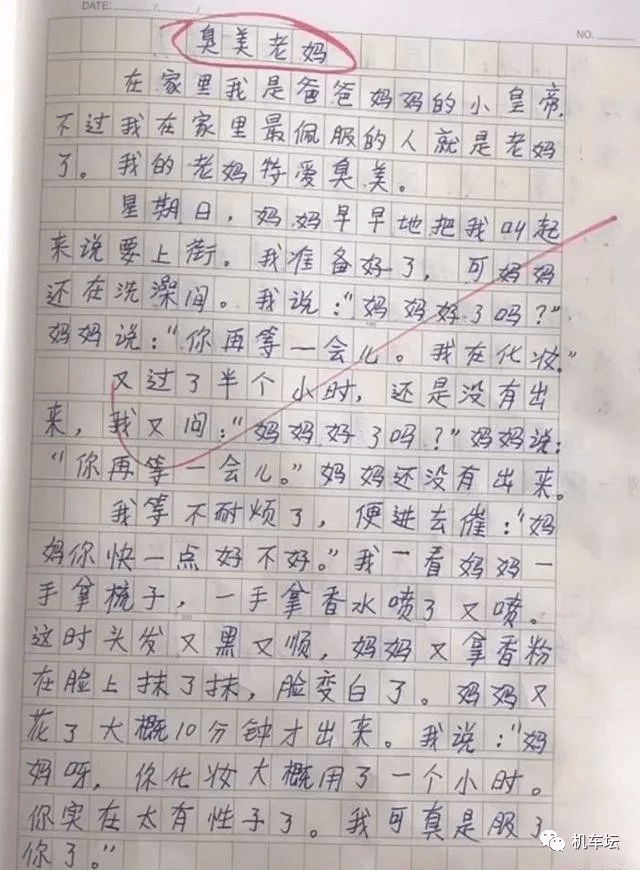 DATE: / /
NO.
臭美老妈
在家里我是爸爸妈妈的小皇帝
不过我在家里最佩服的人就是老妈
了。我的老妈特爱臭美。
星期日，妈妈早早地把我叫起
来说要上街。我准备好了，可妈妈
还在洗澡间。我说："妈妈好了吗？"
妈妈说："你再等一会儿。我在化妆"
又过了半个小时，还是没有出
来，我又问："妈妈好了吗？"妈妈说：
"你再等一会儿。"妈妈还没有出来。
我等不耐烦了，便进去催："妈
妈你快一点好不好。"我一看妈妈一
手拿梳子，一手拿香水喷了又喷。
这时头发又黑又顺，妈妈又拿香粉
在脸上抹了抹，脸变白了。妈妈又
花了大概10分钟才出来。我说："妈
妈呀，你化妆大概用了一个小时。
你实在太有性子了。我可真是服了
你了。"
机车坛